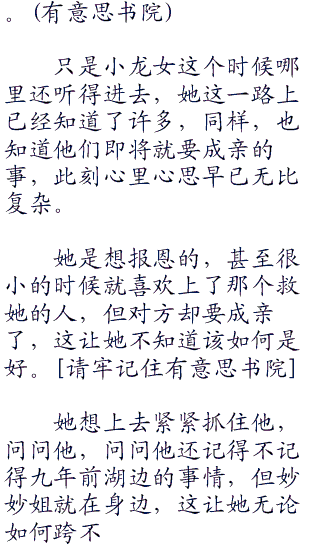 。(有意思书院)
只是小龙女这个时候哪
里还听得进去，她这一路上
已经知道了许多，同样，也
知道他们即将就要成亲的
事，此刻心里心思早已无比
复杂。
她是想报恩的，甚至很
小的时候就喜欢上了那个救
她的人，但对方却要成亲
了，这让她不知道该如何是
好。[请牢记住有意思书院]
她想上去紧紧抓住他，
问问他，问问他还记得不记
得九年前湖边的事情，但妙
妙姐就在身边，这让她无论
如何跨不